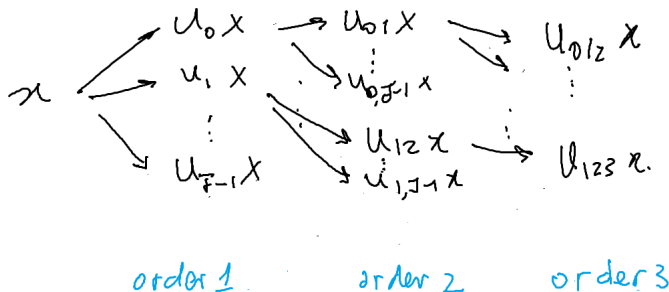 U₀ x U₀₁ x U₀₁₂ x
x U₁ x U₀,J-1 x
U₁₂ x
U_J-1 x U₁,J-1 x U₁₂₃ x.
order 1 order 2 order 3